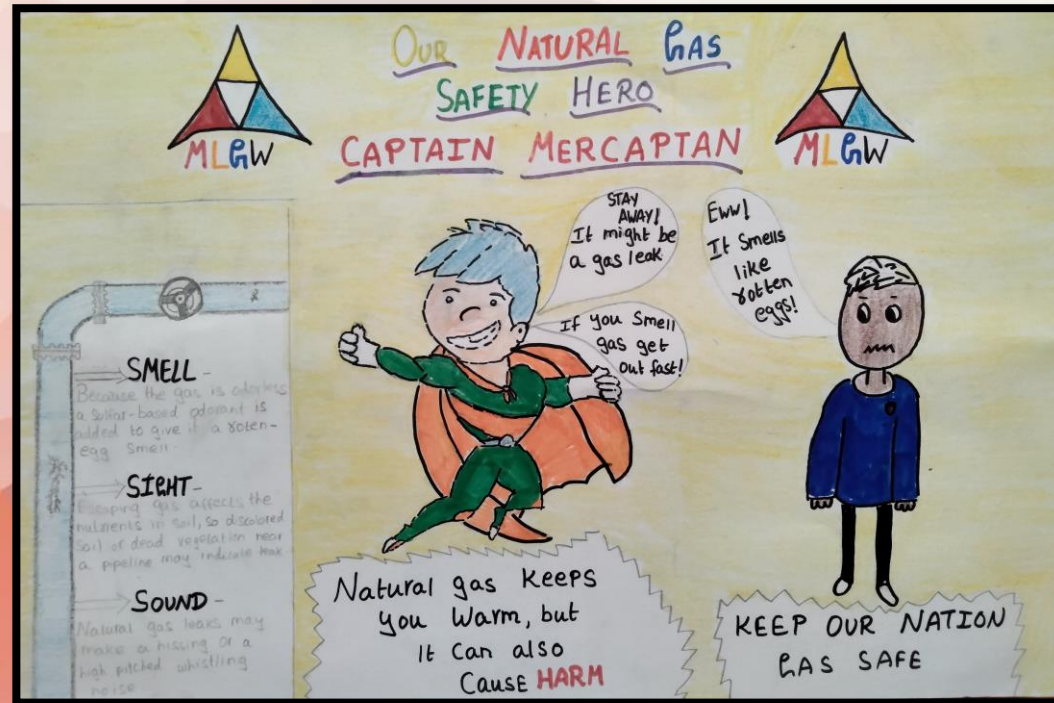 OUR NATURAL GAS
SAFETY HERO
CAPTAIN MERCAPTAN
MLGW
MLGW
STAY
AWAY!
It might be
a gas leak
If you Smell
gas get
out fast!
Eww!
It Smells
like
rotten
eggs!
SMELL-
Because the gas is odorless
a sulfur-based odorant is
added to give it a roten-
egg smell.
SIGHT-
Escaping gas affects the
nutrients in soil, so discolored
soil or dead vegetation near
a pipeline may indicate leak
SOUND-
Natural gas leaks may
make a hissing or a
high pitched whistling
noise
Natural gas keeps
you Warm, but
It Can also
Cause HARM
KEEP OUR NATION
GAS SAFE